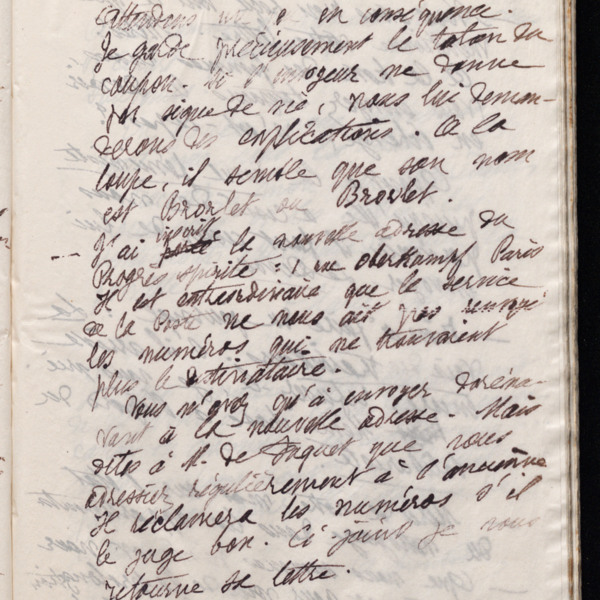 en conséquence.
Je garde précieusement le talon du
coupon. Si l'envoyeur ne donne
pas signe de vie, nous lui deman-
derons des explications. A la
loupe, il semble que son nom
est Brorlet ou Brovlet.
J'ai inscrit la nouvelle adresse du
Progrès spirite : 1 rue oberkampf Paris
Il est extraordinaire que le service
de la Poste ne nous ait pas renvoyé
les numéros qui ne trouvaient
plus le destinataire.
Vous n'avez qu'à envoyer doréna-
vant à la nouvelle adresse. Mais
dites à M. de que vous
adressiez régulièrement à l'ancienne
Il réclamera les numéros s'il
le juge bon. Ci-joint je vous
retourne sa lettre.